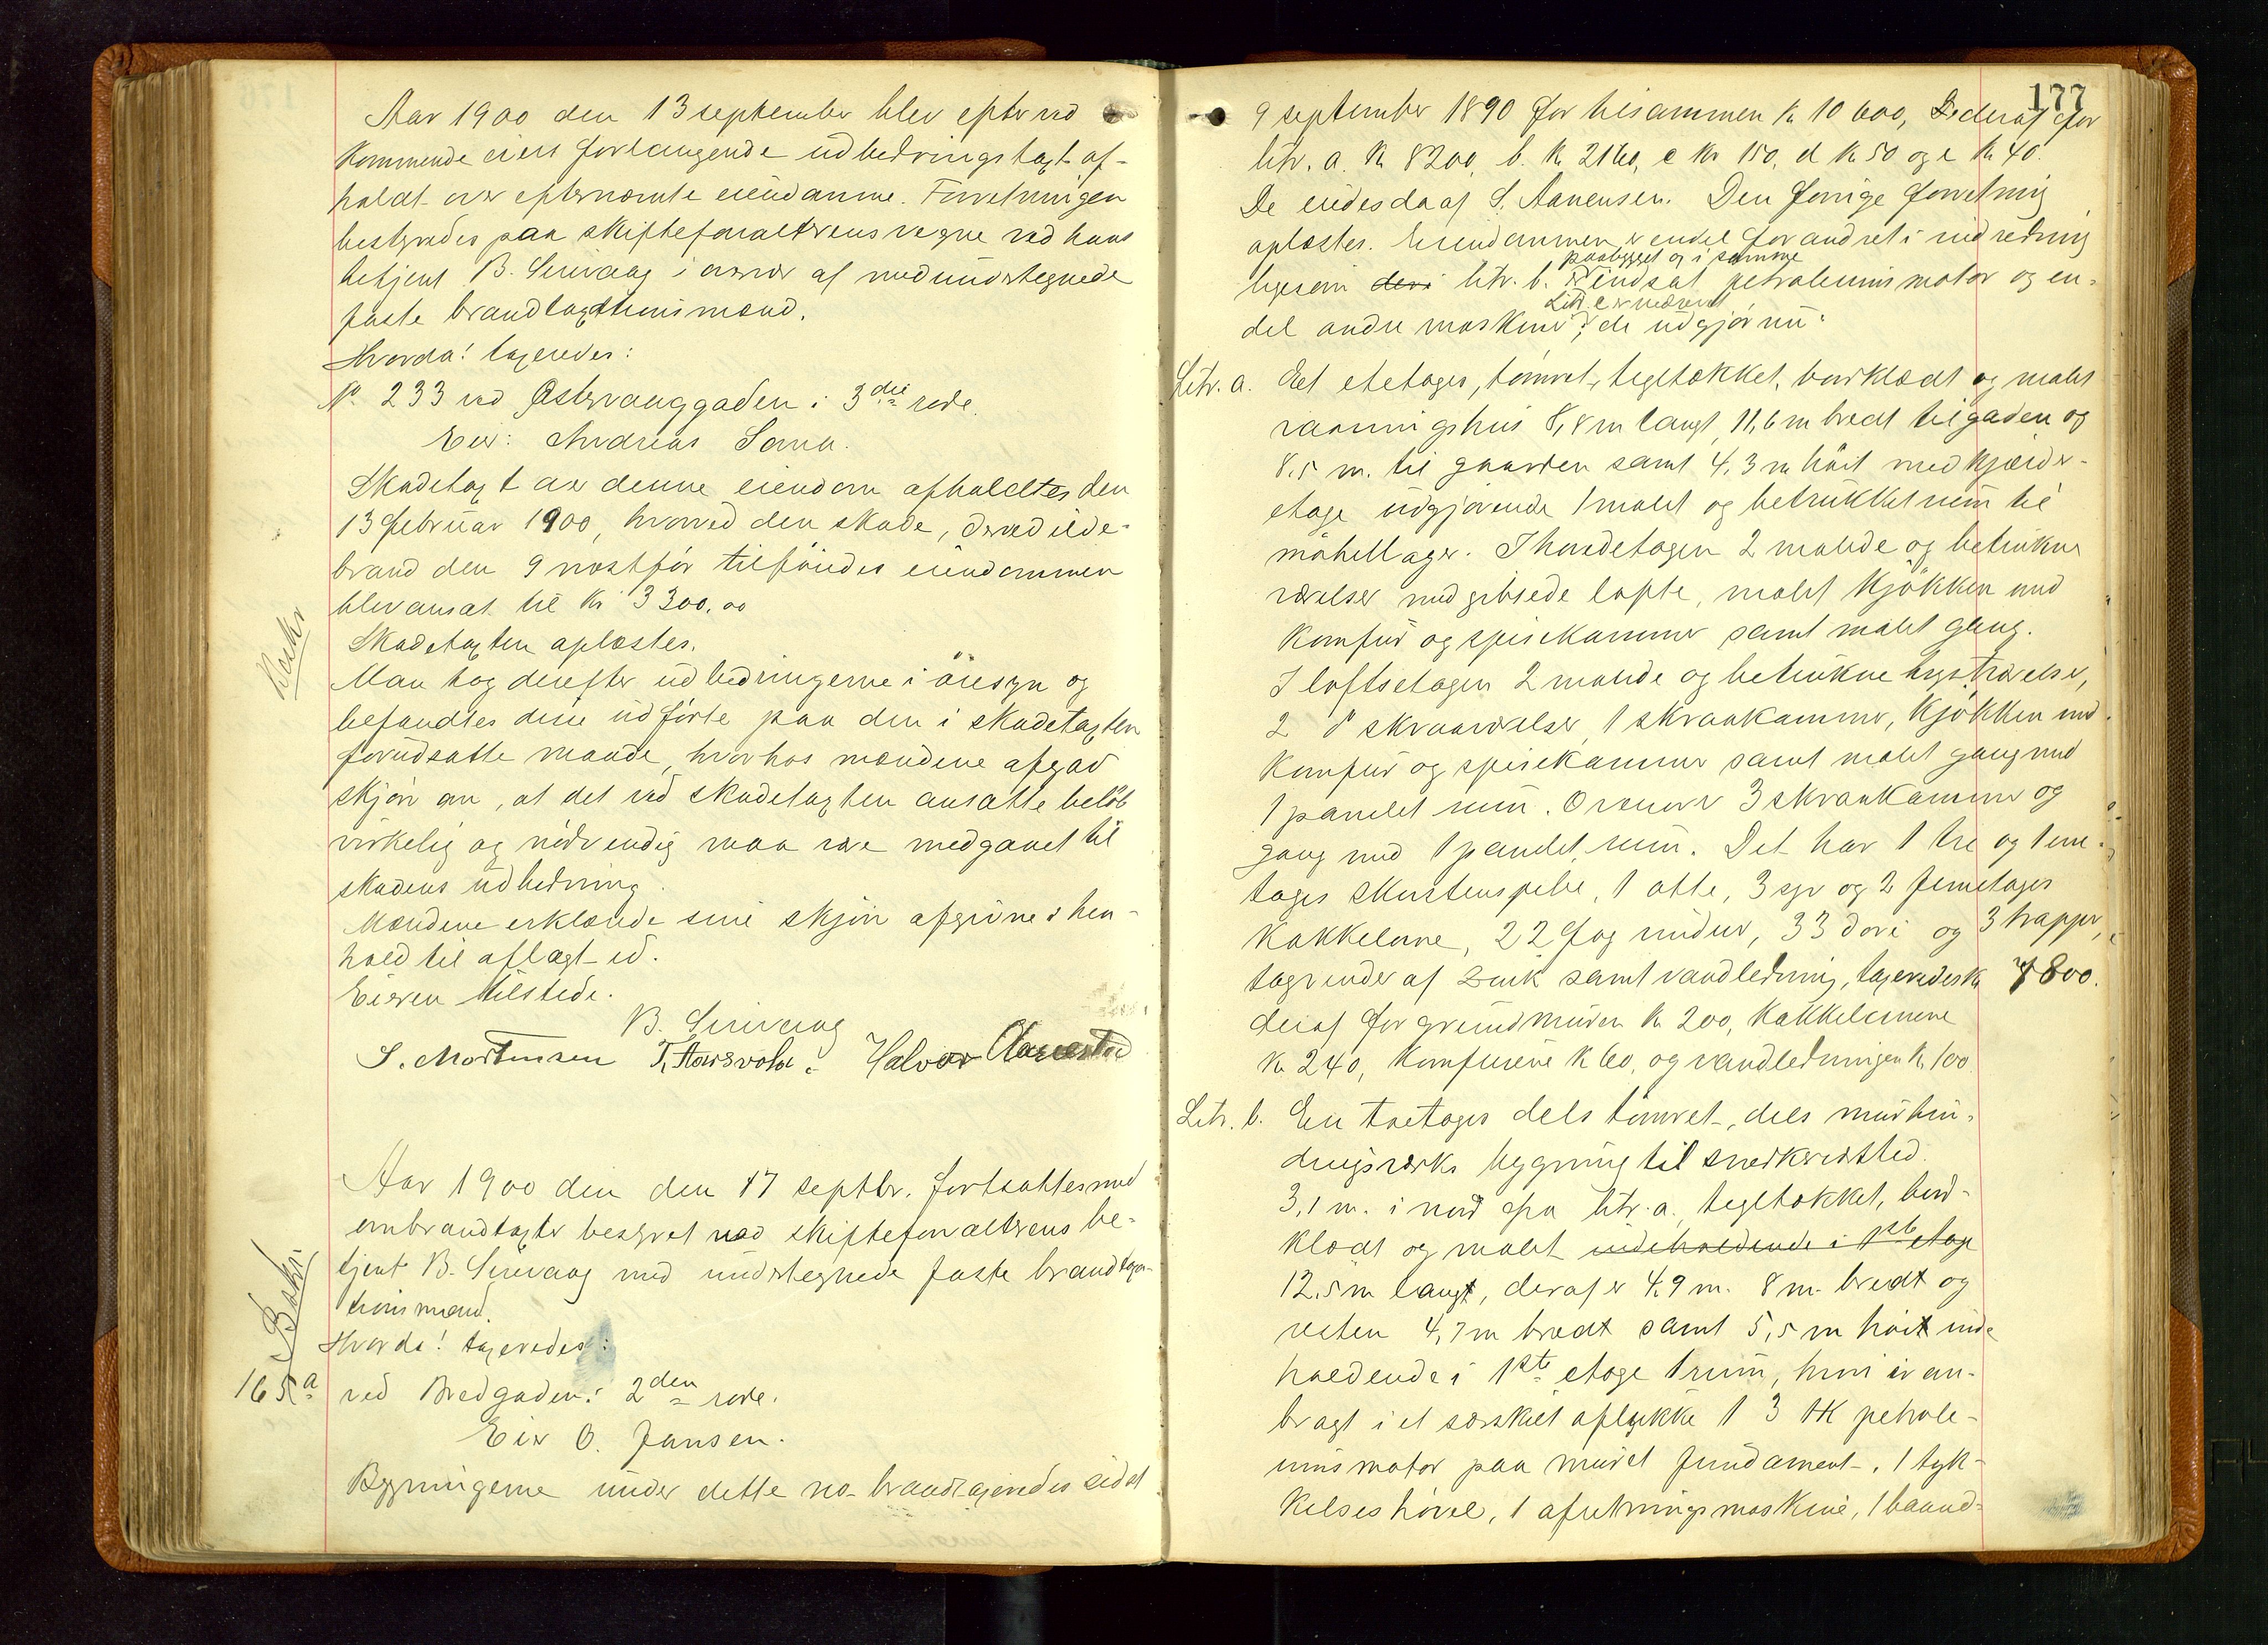 Aar 1900 den 13 september blev efter ved
kommende eiers forlangende udbedringstaxt af-
holdt over efternævnte eiendomme. Forretningen
bestyredes paa skifteforvalterens vegne ved hans
betjent B. Sirivaag i overvær af medundertegnede
faste brandtaxtionsmænd.
Hvorda! taxeredes:
No 233 ved Østervaaggaden i 3die rode.
Eier: Andreas Sana.
Skadetaxt over denne eiendom afholdtes den
13 februar 1900, hvorved den skade, der ved ilde-
brand den 9 næstfør tilføiedes eiendommen
blev ansat til Kr 3300.00
Skadetaxten oplæstes.
Man tog derefter udbedringerne i øiesyn og
befandtes disse udførte paa den i skadetaxten
forudsatte maade, hvorhos mændene afgav
skjøn om, at det ved skadetaxten ansatte beløb
virkelig og nødvendig maa være medgaaet til
skadens udbedring.
Mændene erklærede sine skjøn afgivne i hen-
hold til aflagt ed.
Eieren tilstede.
B. Sirivaag
S. Mortensen T. Aarsvold. Halvor
Aar 1900 den den 17 septbr. fortsattes med
ombrandtaxter bestyret ved skifteforvalterens be-
tjent B. Sirivaag med undertegnede faste brandtxa-
tionsmænd.
Hvorda! taxeredes:
165a ved Bredgaden i 2den rode.
Eier O. Jansen.
Bygningerne under dette no brandtaxeredes sidst
177
9 september 1890 for tilsammen Kr 10600, deraf for
litr. a. Kr 8200, b. Kr 2160, c Kr 150, d Kr 50 og e Kr 40.
De eiedes da af S. Aanensen. Den forrige forretning
oplæstes. Eiendommen er endel forandret i indredning
paabygget og i samme
ligesom litr. b. er indsat petroleumsmotor og en-
Litr e er nedrevet
del andre maskiner; de udgjør nu:
Litr. a. Et etetages, tømret, tegltækket, bordklædt og malet
vaaningshus 8,8 m langt, 11,6 m bredt til gaden og
8,5 m. til gaarden samt 4,3 m høit med kjælder-
etage udgjørende 1 malet og betrukket rum til
møbellager. I hovedetagen 2 malede og betrukne
værelser med gibsede lofte, malet kjøkken med
komfur og spisekammer samt malet gang.
I loftsetagen 2 malede og betrukne kvistværelser,
2 do skraaværelser, 1 skraakammer, kjøkken med
komfur og spisekammer samt malet gang med
1 panelet rum. Ovenover 3 skraakammer og
gang med 1 panelet rum. Det har 1 tre og 1 ene-
tages skorstenspibe, 1 otte, 3 syv og 2 femetages
kakkelovne, 22 fag vinduer, 33 døre og 3 trapper,
tagrender af zink samt vandledning, taxeredes Kr 7800.
deraf for grundmuren Kr 200, kakkelovnene
Kr 240, komfurene Kr 60, og vandledningen Kr 100
Litr. b. En toetages dels tømret, dels murbin-
dingsværks bygning til snedkerværksted.
3,1 m. i nord fra litr. a. tegltækket, bord-
klædt og malet indeholdende i 1ste etage
12,5 m langt, deraf er 4,9 m. 8 m. bredt og
resten 4,7 m bredt samt 5,5 m høit inde
holdende i 1ste etage 1 rum, hvori er an-
bragt i et særskilt aflukke 1 3 HK petrole-
umsmotor paa muret fundament, 1 tyk-
kelseshøvel, 1 afretningsmaskine, 1 baand-